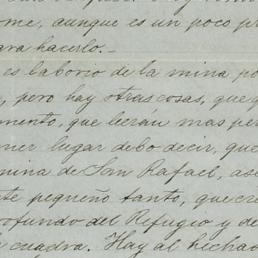 ome, aunque es un poco pr
ara hacerlo.
es laborio de la mina po
, pero hay otras cosas, que
mento, que seran mas per
mer lugar debo decir, que
mina de San Rafael, as
te pequeño tanto, que cre
ofundo del Refugio y de
cuadra. Hay al hechad